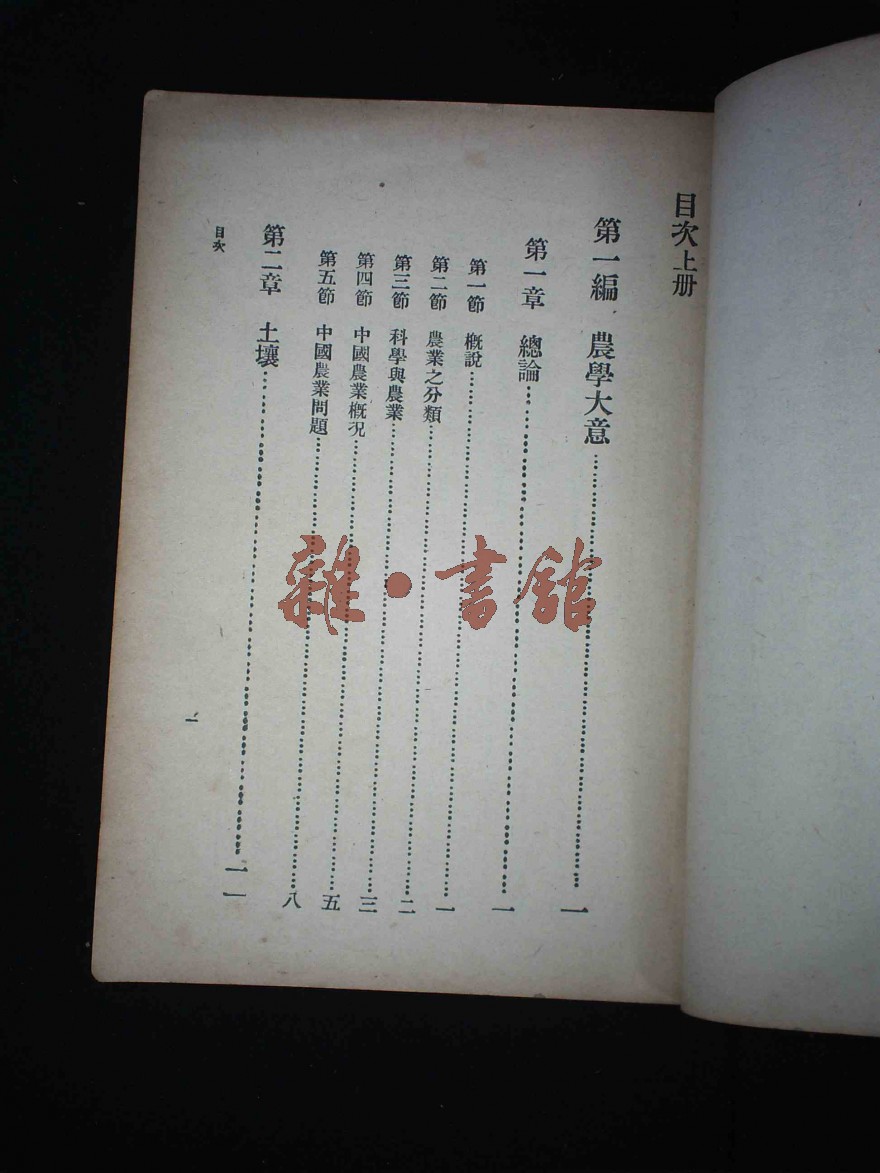 目次上册
第一編　農學大意……一
第一章　總論……一
第一節　概說……一
第二節　農業之分類……二
第三節　科學與農業……三
第四節　中國農業概况……五
第五節　中國農業問題……八
第二章　土壤……一一
目次
一
雜·書館